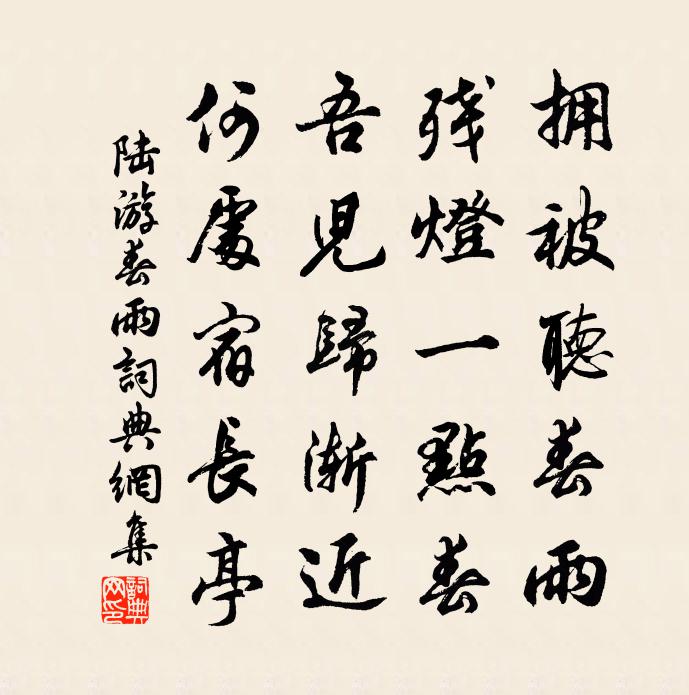 拥被聽春雨
残燈一點春
吾兒歸漸近
何處宿長亭
陸游春雨詞典網集
詞典网印